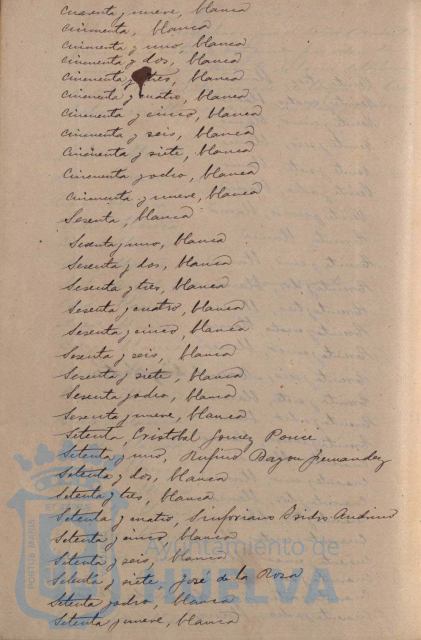 Cuarenta y nueve, blanca
cincuenta, blanca
cincuenta y uno, blanca
cincuenta y dos, blanca
cincuenta y tres, blanca
cincuenta y cuatro, blanca
cincuenta y cinco, blanca
cincuenta y seis, blanca
cincuenta y siete, blanca
cincuenta y ocho, blanca
cincuenta y nueve, blanca
Sesenta, blanca
Sesenta y uno, blanca
Sesenta y dos, blanca
Sesenta y tres, blanca
Sesenta y cuatro, blanca
Sesenta y cinco, blanca
Sesenta y seis, blanca
Sesenta y siete, blanca
Sesenta y ocho, blanca
Sesenta y nueve, blanca
Setenta, Cristobal Gomez Ponce
Setenta y uno, Rufino Bayon Fernandez
Setenta y dos, blanca
Setenta y tres, blanca
Setenta y cuatro, Sinforiano Isidro
Setenta y cinco, blanca
Setenta y seis, blanca
Setenta y siete, José de la Rosa
Setenta y ocho, blanca
Setenta y nueve, blanca
Ayuntamiento de
HUELVA